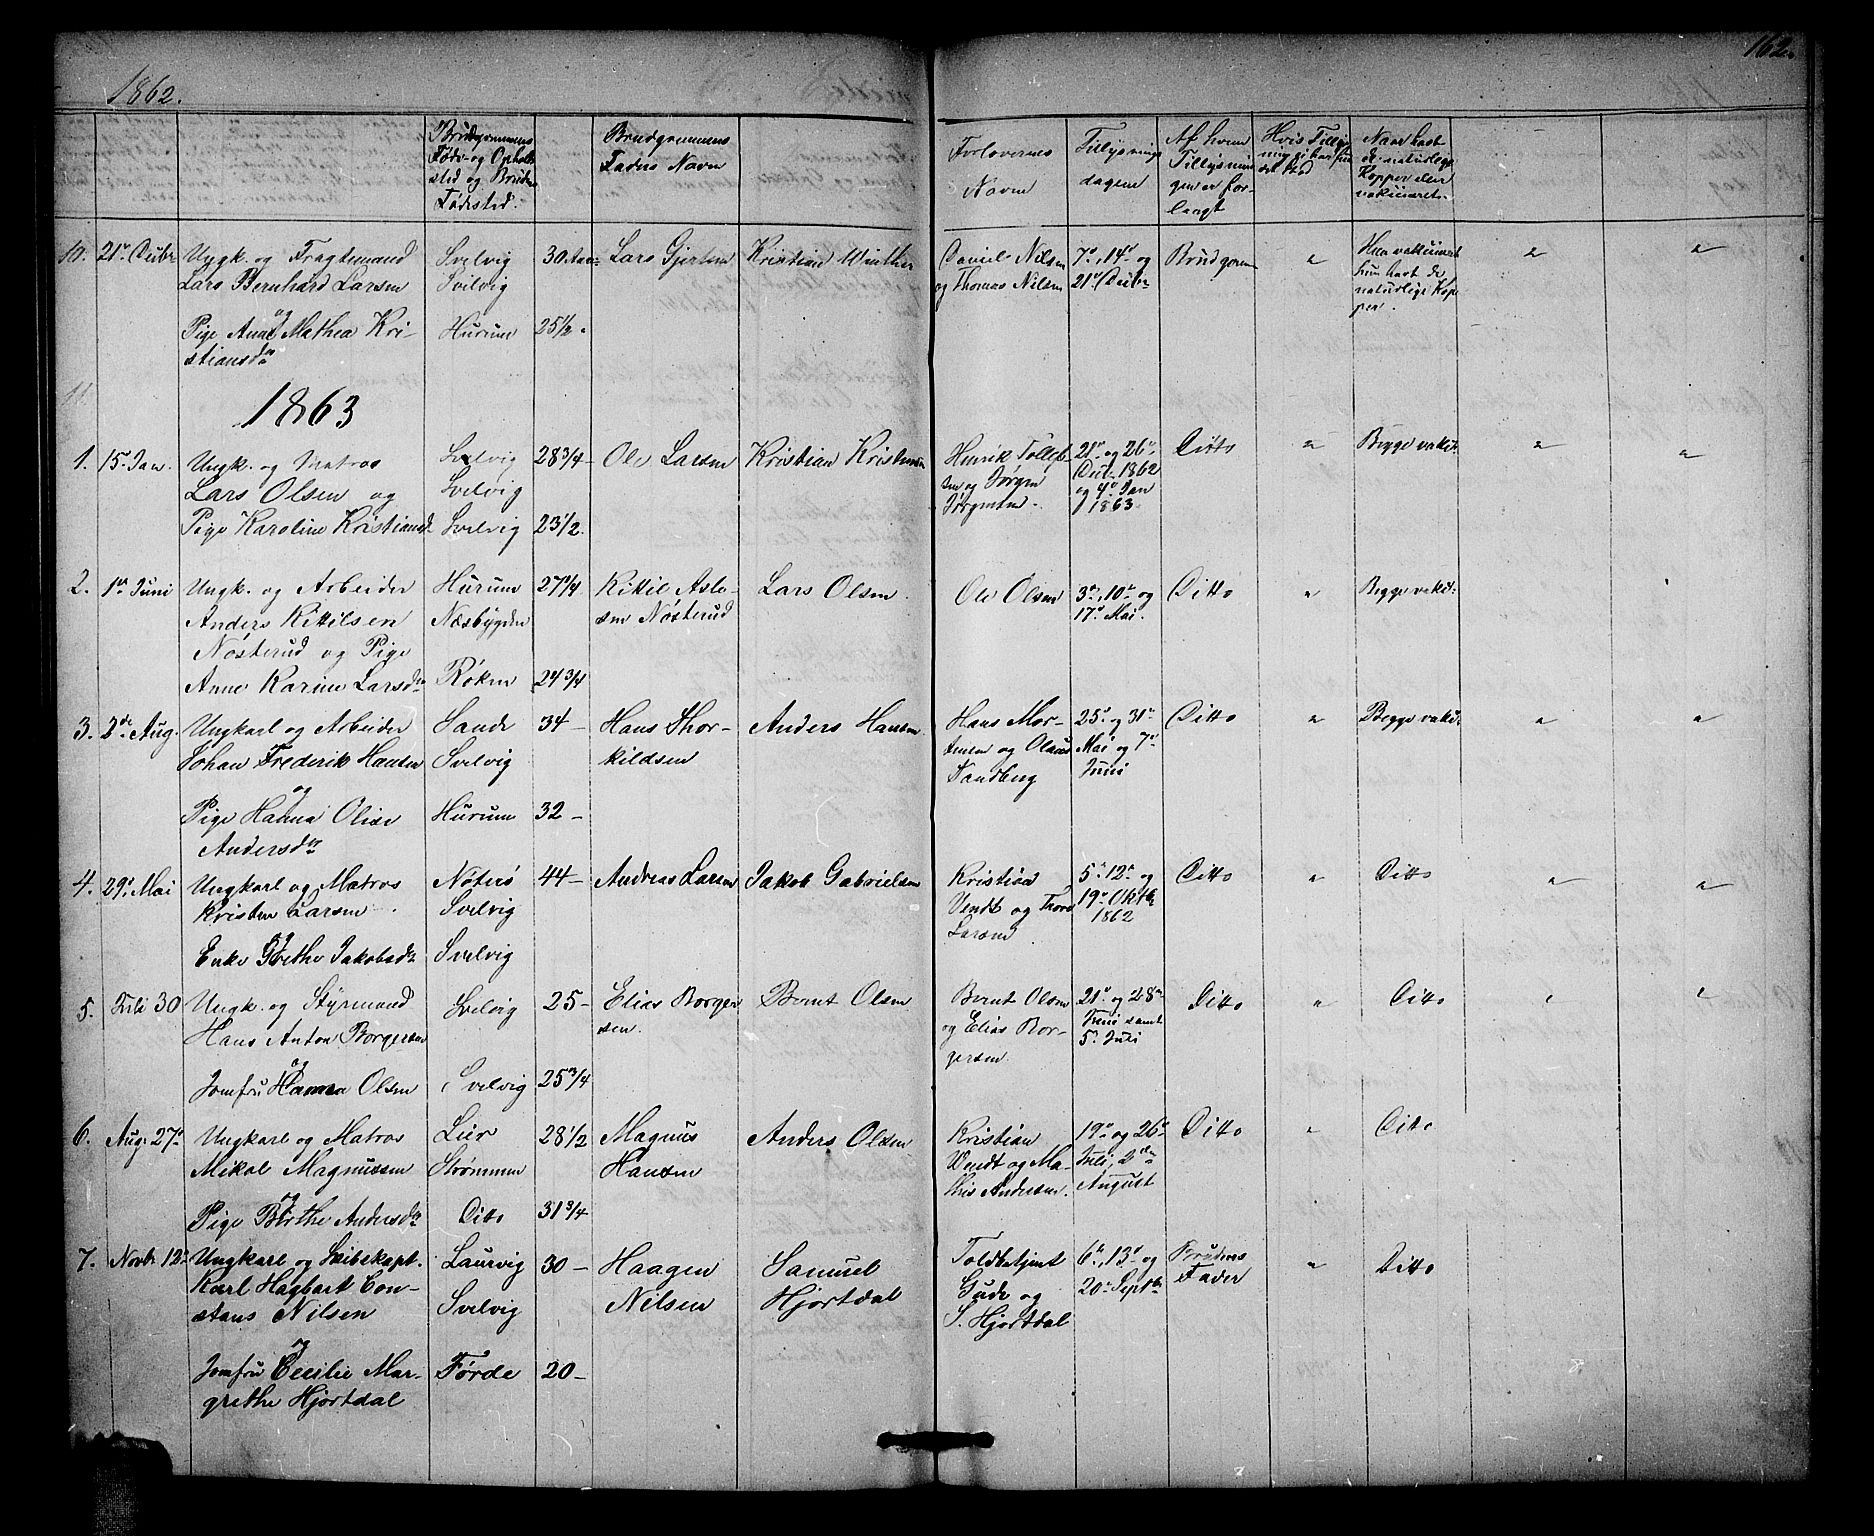 1862.
162.
Brudgommens Føde- og Opholdssted og Brudens Fødested.
Brudgommens Faders Navn
Forlovernes Navn
Tillysningsdagene
Af hvem Tillysningen er forlangt
Hvis Tillysning ei har fundet Sted
Naar havt de naturlige Kopper eller vakcineret
10. 21de Decbr Ungk. og Fragtemand Svelvig 30 Aar Lars Gjertsen Kristian Winther Daniel Nilsen 7de, 14de og Brudgommen " Han vakcineret " "
Lars Bernhard Larsen Svelvig og Thomas Nilsen 21de Decbr hun havt de
og naturlige Kop-
Pige Anne Mathea Kri- Hurum 25 1/2 per.
stiansdr
11.
1863
1. 15. Jan. Ungk. og Matros Svelvig 28 3/4 Ole Larsen Kristian Kristensen Henrik Tollefs- 21de og 26de Ditto " Begge vakc: " "
Lars Olsen og Svelvig sen og Jørgen Decbr 1862
Pige Karoline Kristiansd. Svelvig 23 1/2. Jørgensen. og 4de Jan 1863.
2. 1ste Juni Ungk. og Arbeider Hurum 27 1/4 Kittil Asle- Lars Olsen. Ole Olsen 3de, 10de og Ditto " Begge vakc:
Anders Kittilsen Næsbygden sen Nøsterud 17de Mai.
Nøsterud og Pige
Anne Karine Larsdr Røken 24 3/4
3. 2de Aug. Ungkarl og Arbeider Sande 34 - Hans Thor- Anders Hansen Hans Mor- 25de og 31te Ditto " Begge vakc: " "
Johan Frederik Hansen Svelvig kildsen tensen og Olaus Mai og 7de
og Sandberg Juni
Pige Hanna Olise Hurum 32 -
Andersdr
4. 29de Mai Ungkarl og Matros Nøterø 44 - Andreas Larsen Jakob Gabrielsen Kristian 5te 12te og Ditto " Ditto " "
Kristen Larsen Svelvig Vendt og Thore 19de Oktbr
og Larsen 1862
Enke Grethe Jakobsdr Svelvig
5. Juli 30 Ungk. og Styrmand Svelvig 25 - Elias Borger- Bernt Olsen Bernt Olsen 21de og 28de Ditto " Ditto " "
Hans Anton Borgersen sen. og Elias Bor- Juni samt
og gersen. 5te Juli
Jomfru Hanna Olsen Svelvig 25 3/4
6. Aug: 27de Ungkarl og Matros Lier 28 1/2 Magnus Anders Olsen Kristian 19de og 26de Ditto " Dito
Mikal Magnussen Strømmen Hansen Wendt og Ma- Juli, 2den
og this Andersen. August
Pige Berthe Andersdr Dito 31 3/4
7. Novbr 12te Ungkarl og Skibskapt. Laurvig 30 - Haagen Samuel Toldbetjent 6te, 13de og Brudens " Ditto
Karl Hagbart Con- Svelvig Nilsen Hjortdal Gude og 20de Septbr Fader
stans Nilsen S. Hjortdal
og
Jomfru Cecilie Mar- Førde 20 -
grethe Hjortdal